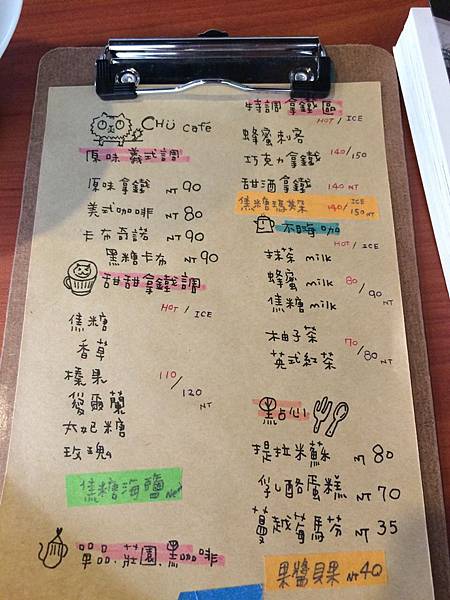 CHÜ cafe
原味義式調
原味拿鐵 NT 90
美式咖啡 NT 80
卡布奇諾 NT 90
黑糖卡布 NT 90
甜甜拿鐵調
HOT / ICE
焦糖
香草
榛果
愛爾蘭
太妃糖
玫瑰
110/120 NT
焦糖海鹽 New
單品.莊園.黑咖啡
特調拿鐵區
HOT / ICE
蜂蜜刺客
巧克力拿鐵 140/150
甜酒拿鐵 140 NT
焦糖瑪其朵 140/ICE 150 NT
不嗨咖
HOT / ICE
抹茶 milk
蜂蜜 milk
焦糖 milk
80/90 NT
柚子茶
英式紅茶
70/80 NT
黑占心
提拉米蘇 NT 80
乳酪蛋糕 NT 70
蔓越莓馬芬 NT 35
果醬貝果 NT 40